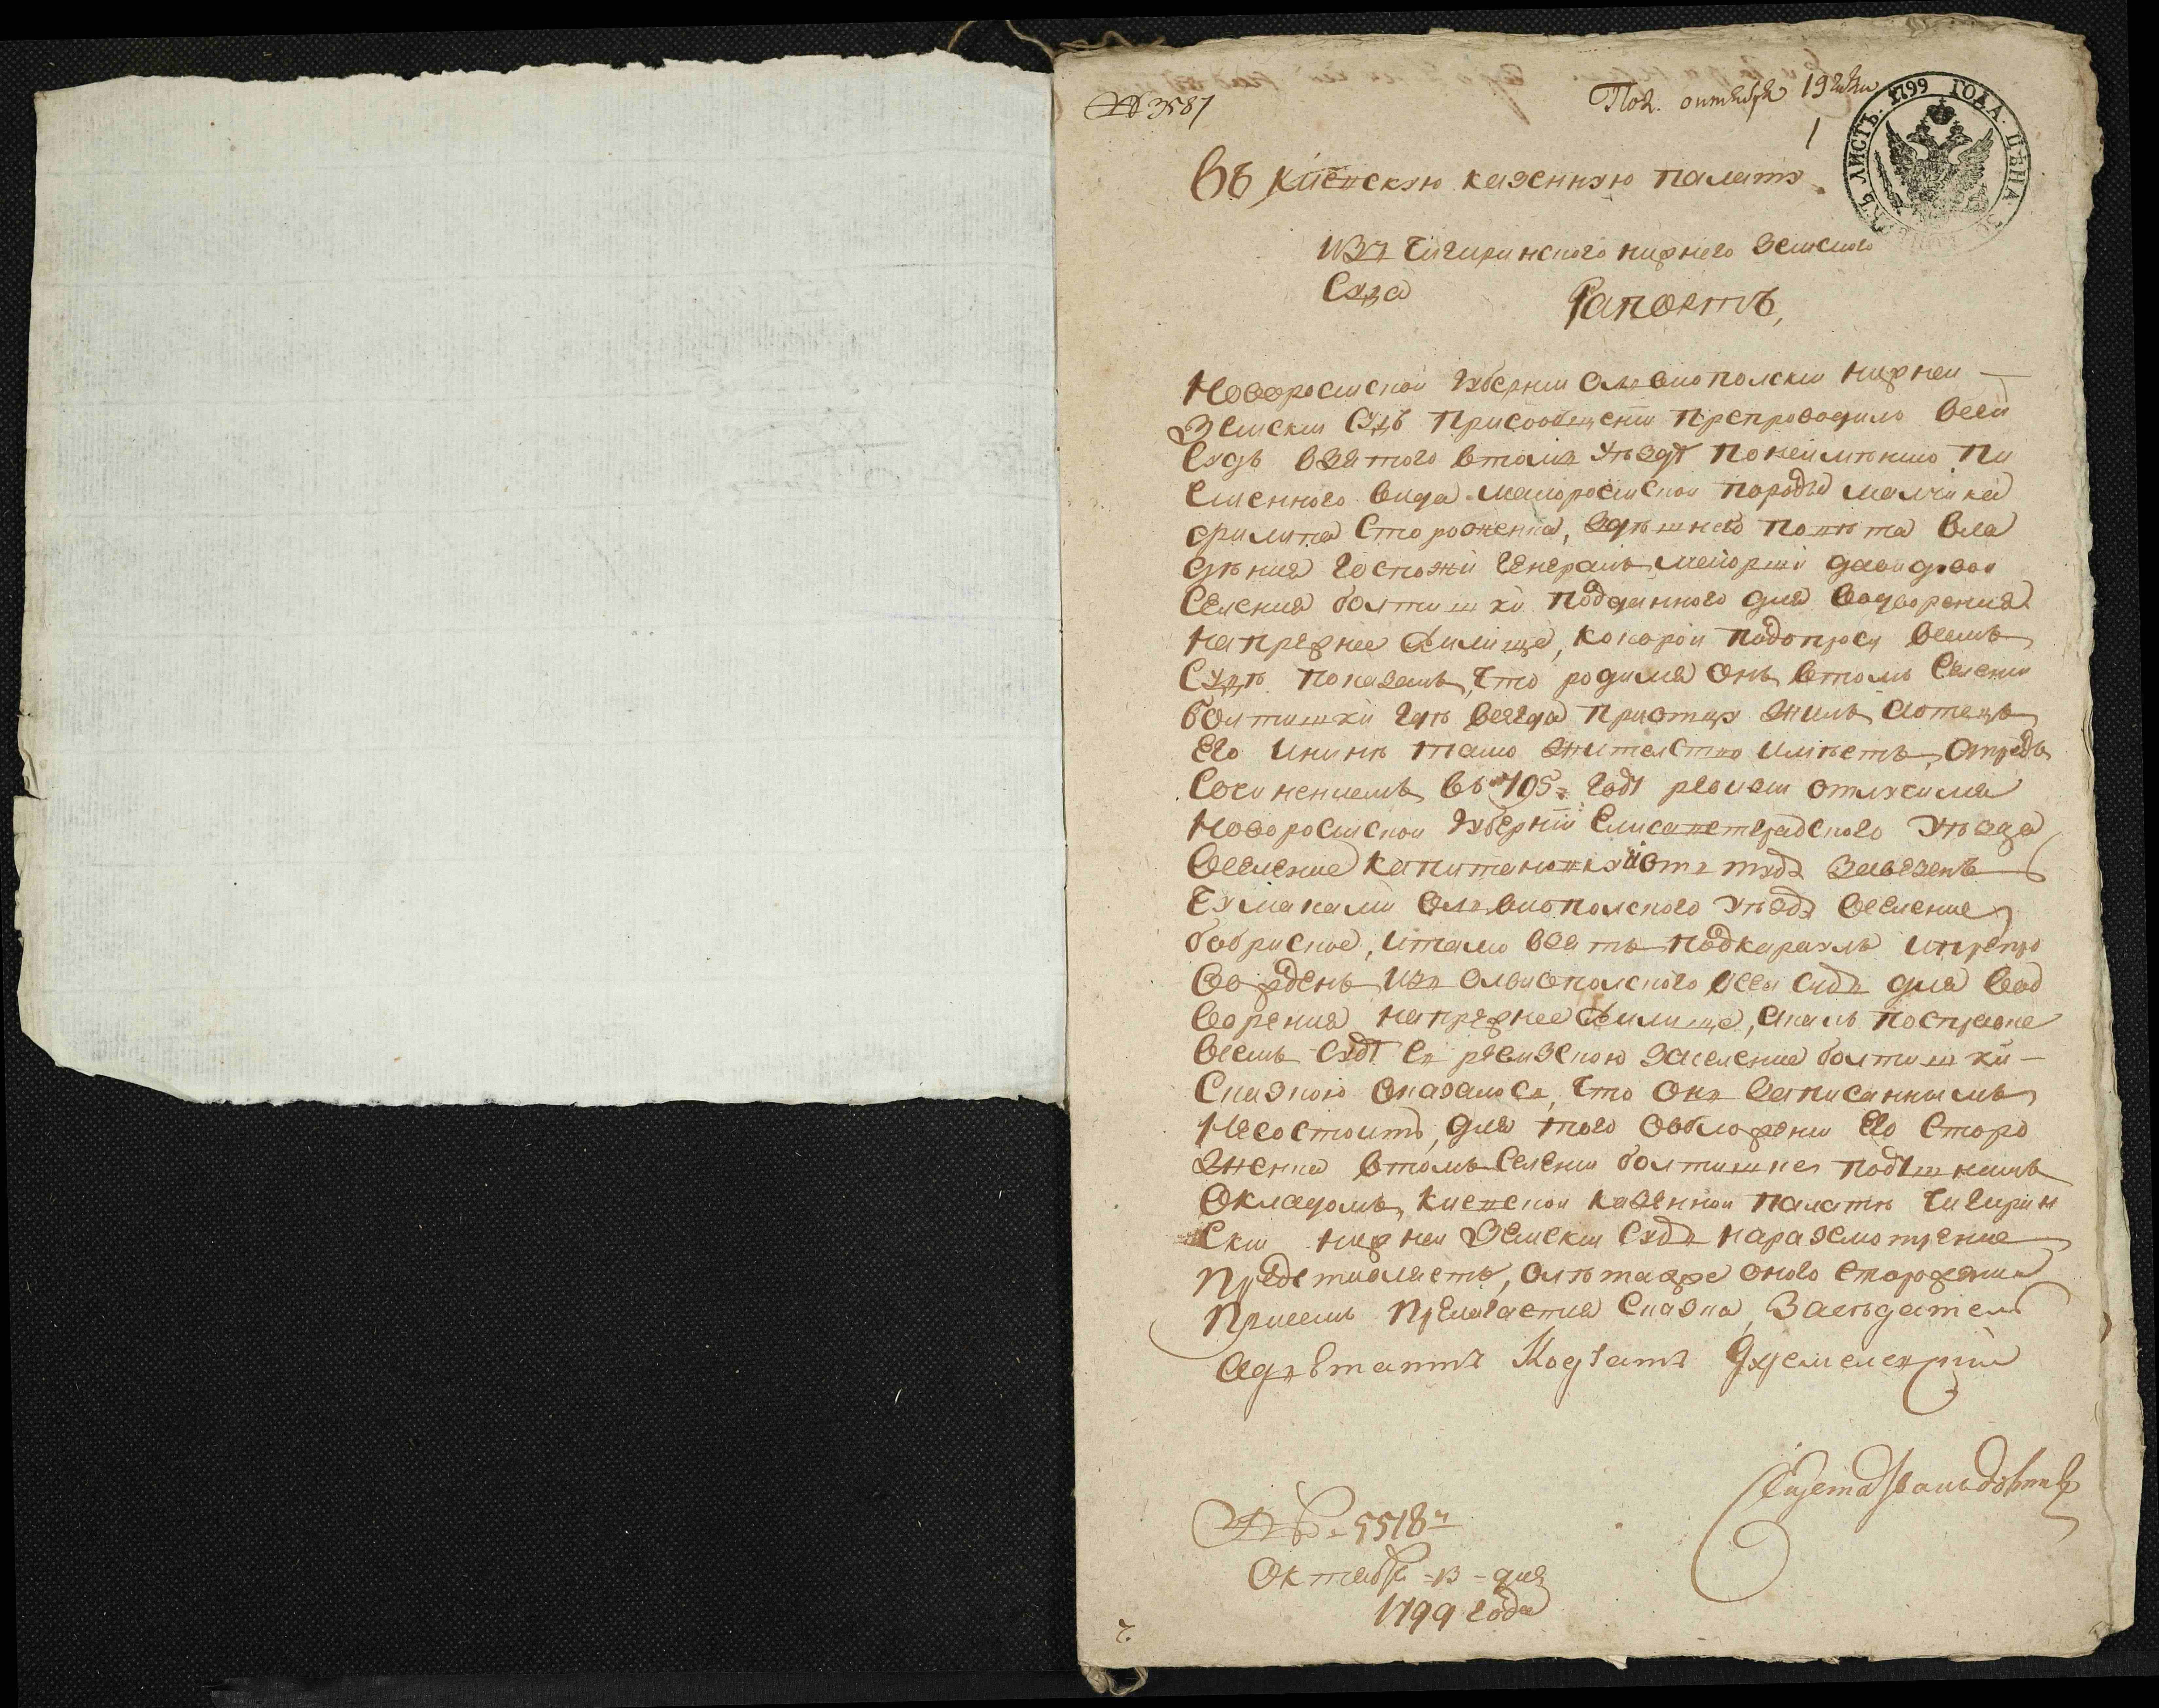 № 3587
Пол. октября 19 дня
1
ЛИСТЪ. 1799 ГОДА. ЦѢНА
Въ Киевскую казенную палату
изъ Чигиринского нижнего земского
Суда
Рапортъ,
Новоросииской губернии Олвиополски нижнеи
Земски Судъ при сообщении препроводило всеи
Судъ взятого втомъ уѣздѣ понеимѣнию пи
сменного вида малоросииской породы малчика
Стороженка, здѣшнего повѣта вла
дѣния госпожи генералъ маиорши давидовои
Селения болтишки подданного для водворения
напрежнее жилище, которои подопросу всемъ
Судѣ показалъ, что родился онъ втомъ Селении
болтишки гдѣ всегда приотцу жилъ аотецъ
его инынѣ тамо жителство имѣетъ, апредъ
Сочинениемъ въ 795 годѣ ревизии отлучился
Новоросииской губернии Елисаветградского уѣзда
вселение Капитановку иоттуда завезенъ
Чумаками Олвиополского уѣзда вселение
бобриское, итамо взятъ подкараулъ ипрепро
вожденъ изъ Олвиополского всеи судъ для вод
ворения напрежнее жилище, акакъ посправке
всемъ Судѣ съ ревизскою заселение болтишки
Сказкою оказалось, что онъ записаннымъ
Несостоитъ, для того обобложении его Сторо
женка втомъ Селении болтишке подушнымъ
Окладомъ, Киевскои казеннои палатѣ Чигирин
ски нижнеи Земски Судъ наразсмотрение
Представляетъ, олѣтахже оного Сторожения
Присемъ прилагается Сказка, Засѣдатель
Секретарь
№ 5518
Октября 13 дня
1799 года